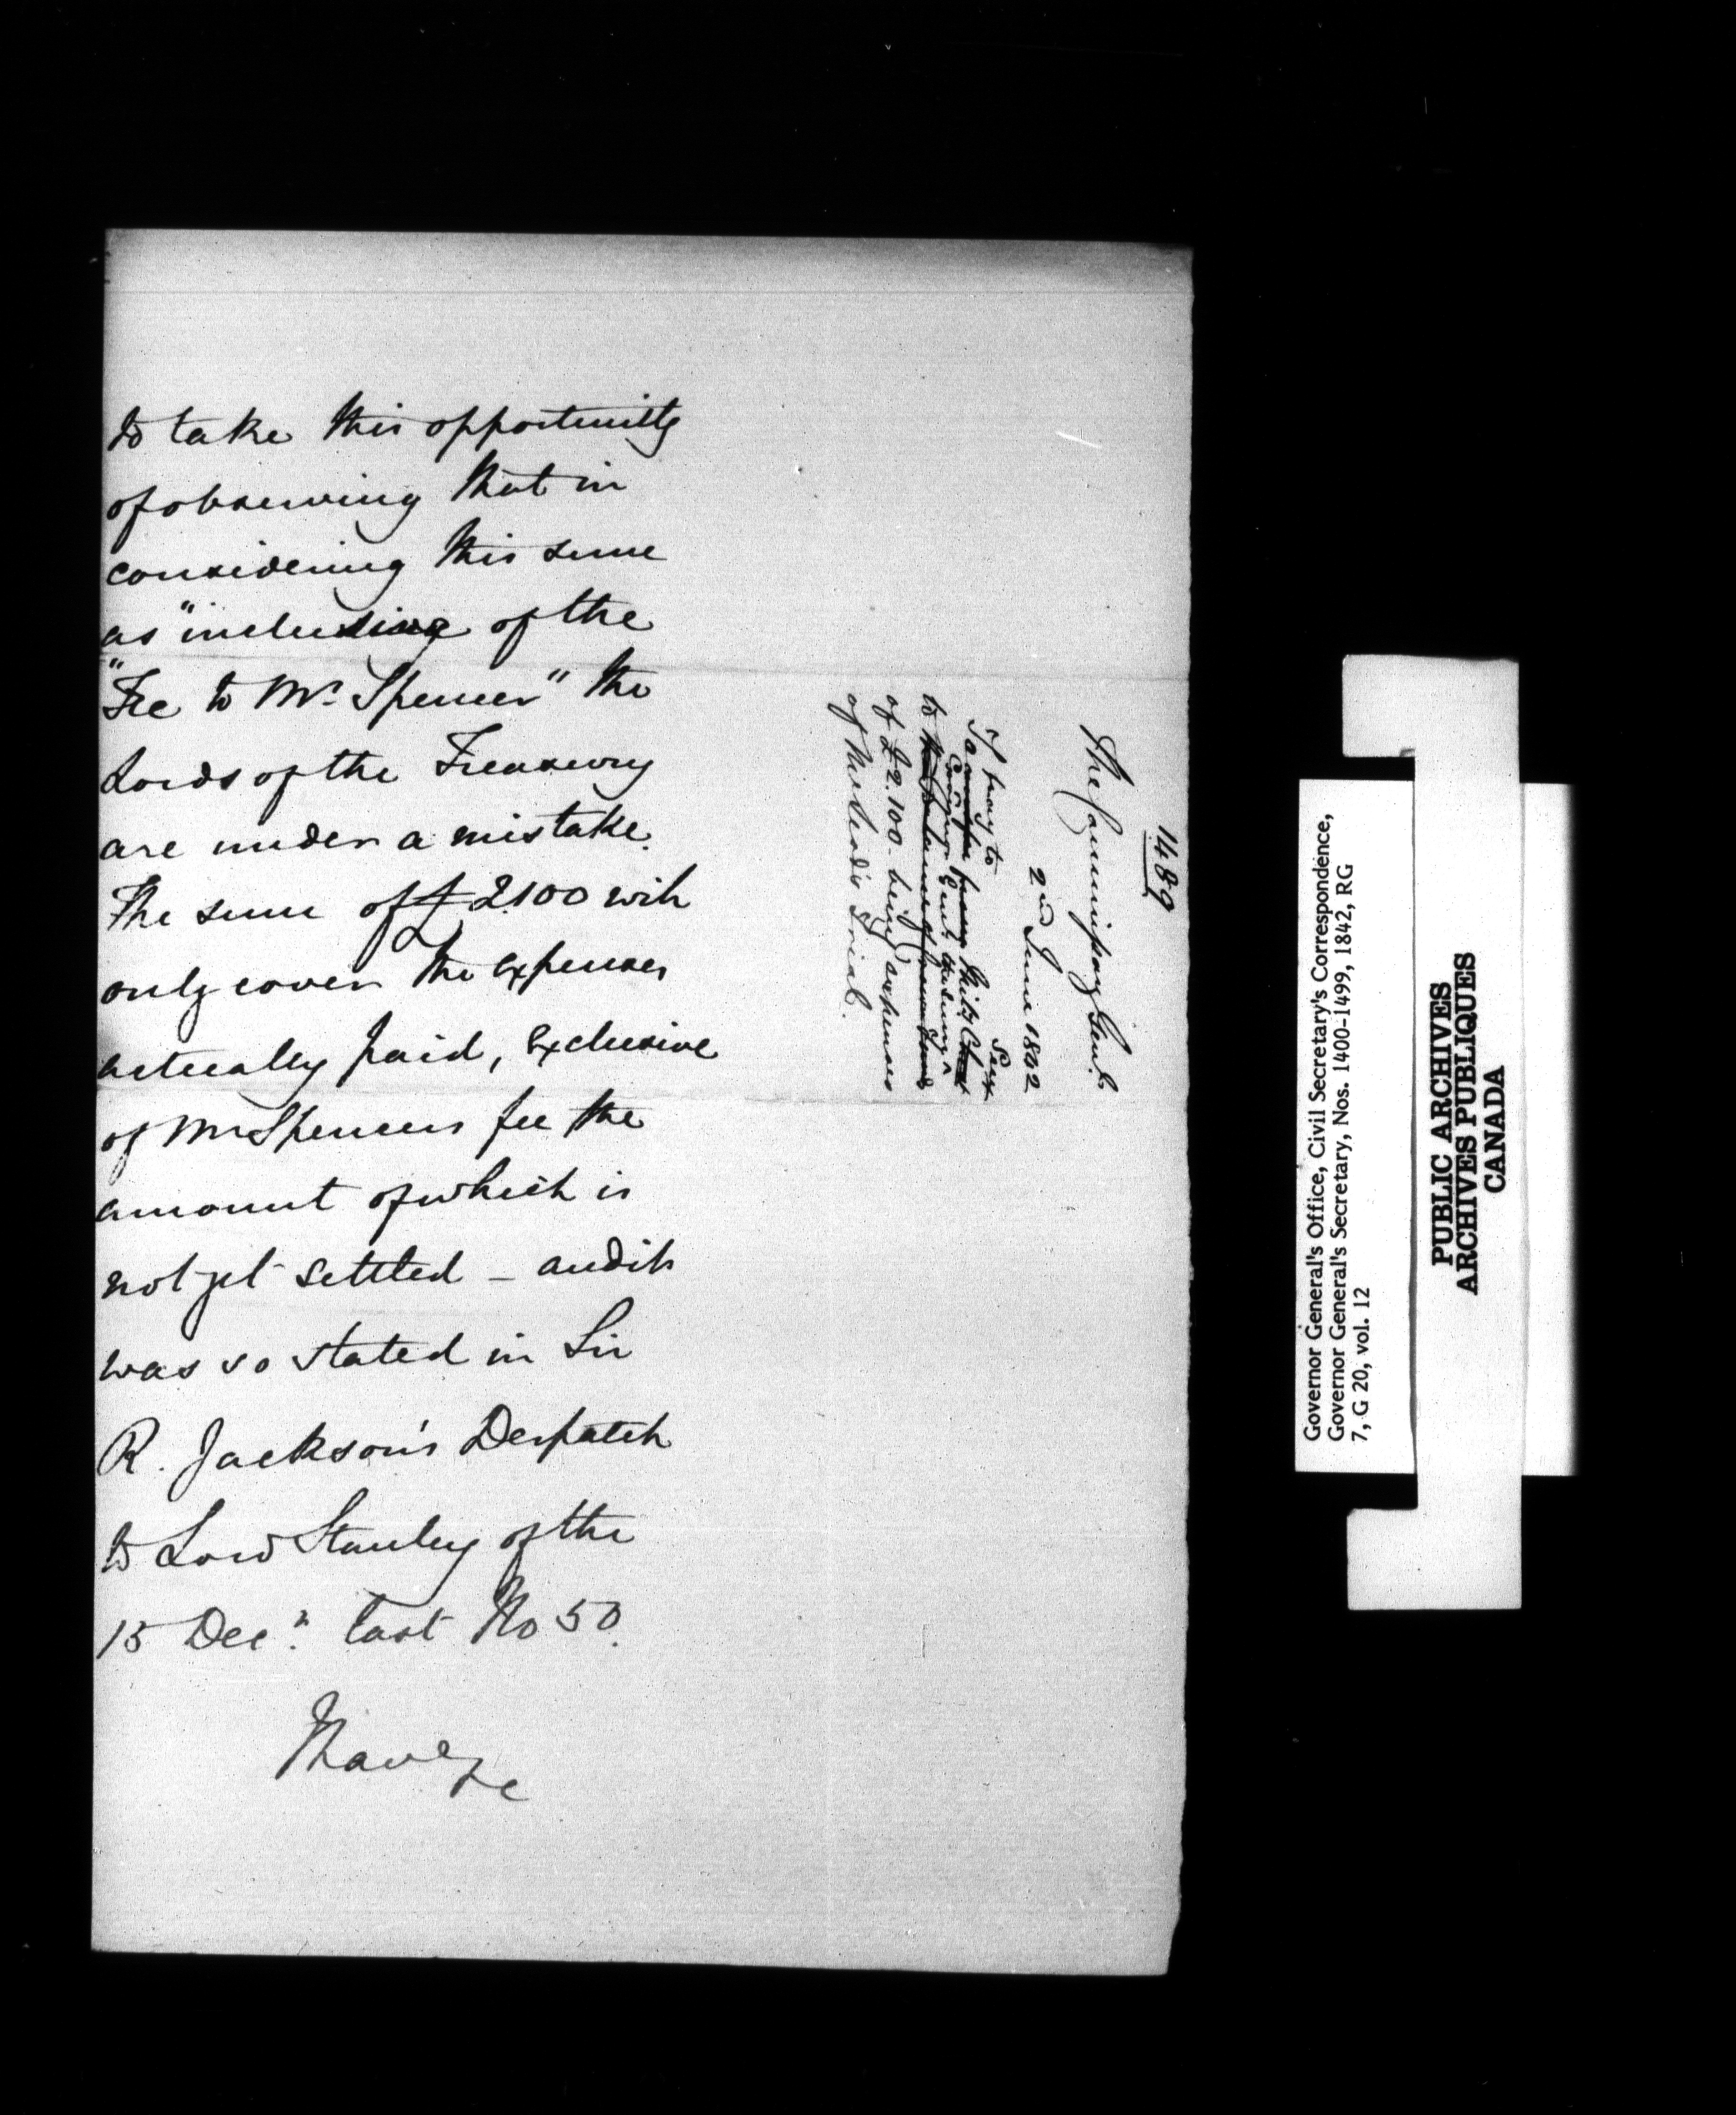 to take this opportunity
of observing that in
considering this sum
as "including of the
"Fee to Mr. Spencer" the
Lords of the Treasury
are under a mistake.
The sum of £2100 will
only cover the expenses
actually paid, exclusive
of Mr Spencers fee the
amount of which is
not yet settled _ and it
was so stated in Sir
R. Jackson's Despatch
to Lord Stanley of the
15 Decr. last No 50.
I have &c
1489
The Commissary Genl.
2nd June 1842
to pay to
Secy
to
of £2.100. being expenses
of McLeod's Trial.
Governor General's Office, Civil Secretary's Correspondence,
Governor General's Secretary, Nos. 1400-1499, 1842, RG
7, G 20, vol. 12
PUBLIC ARCHIVES
ARCHIVES PUBLIQUES
CANADA